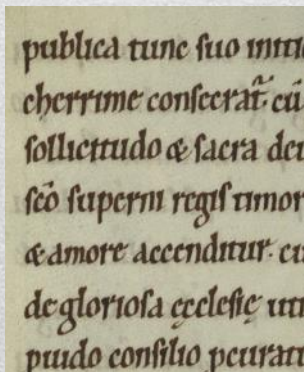 publica tunc suo initi
cherrime consecrat̄. cū
sollicitudo & sacra deu
sc̄o superni regis timor
& amore accenditur. cu
de gloriosa ęcclesię uti
puido consilio pcurat